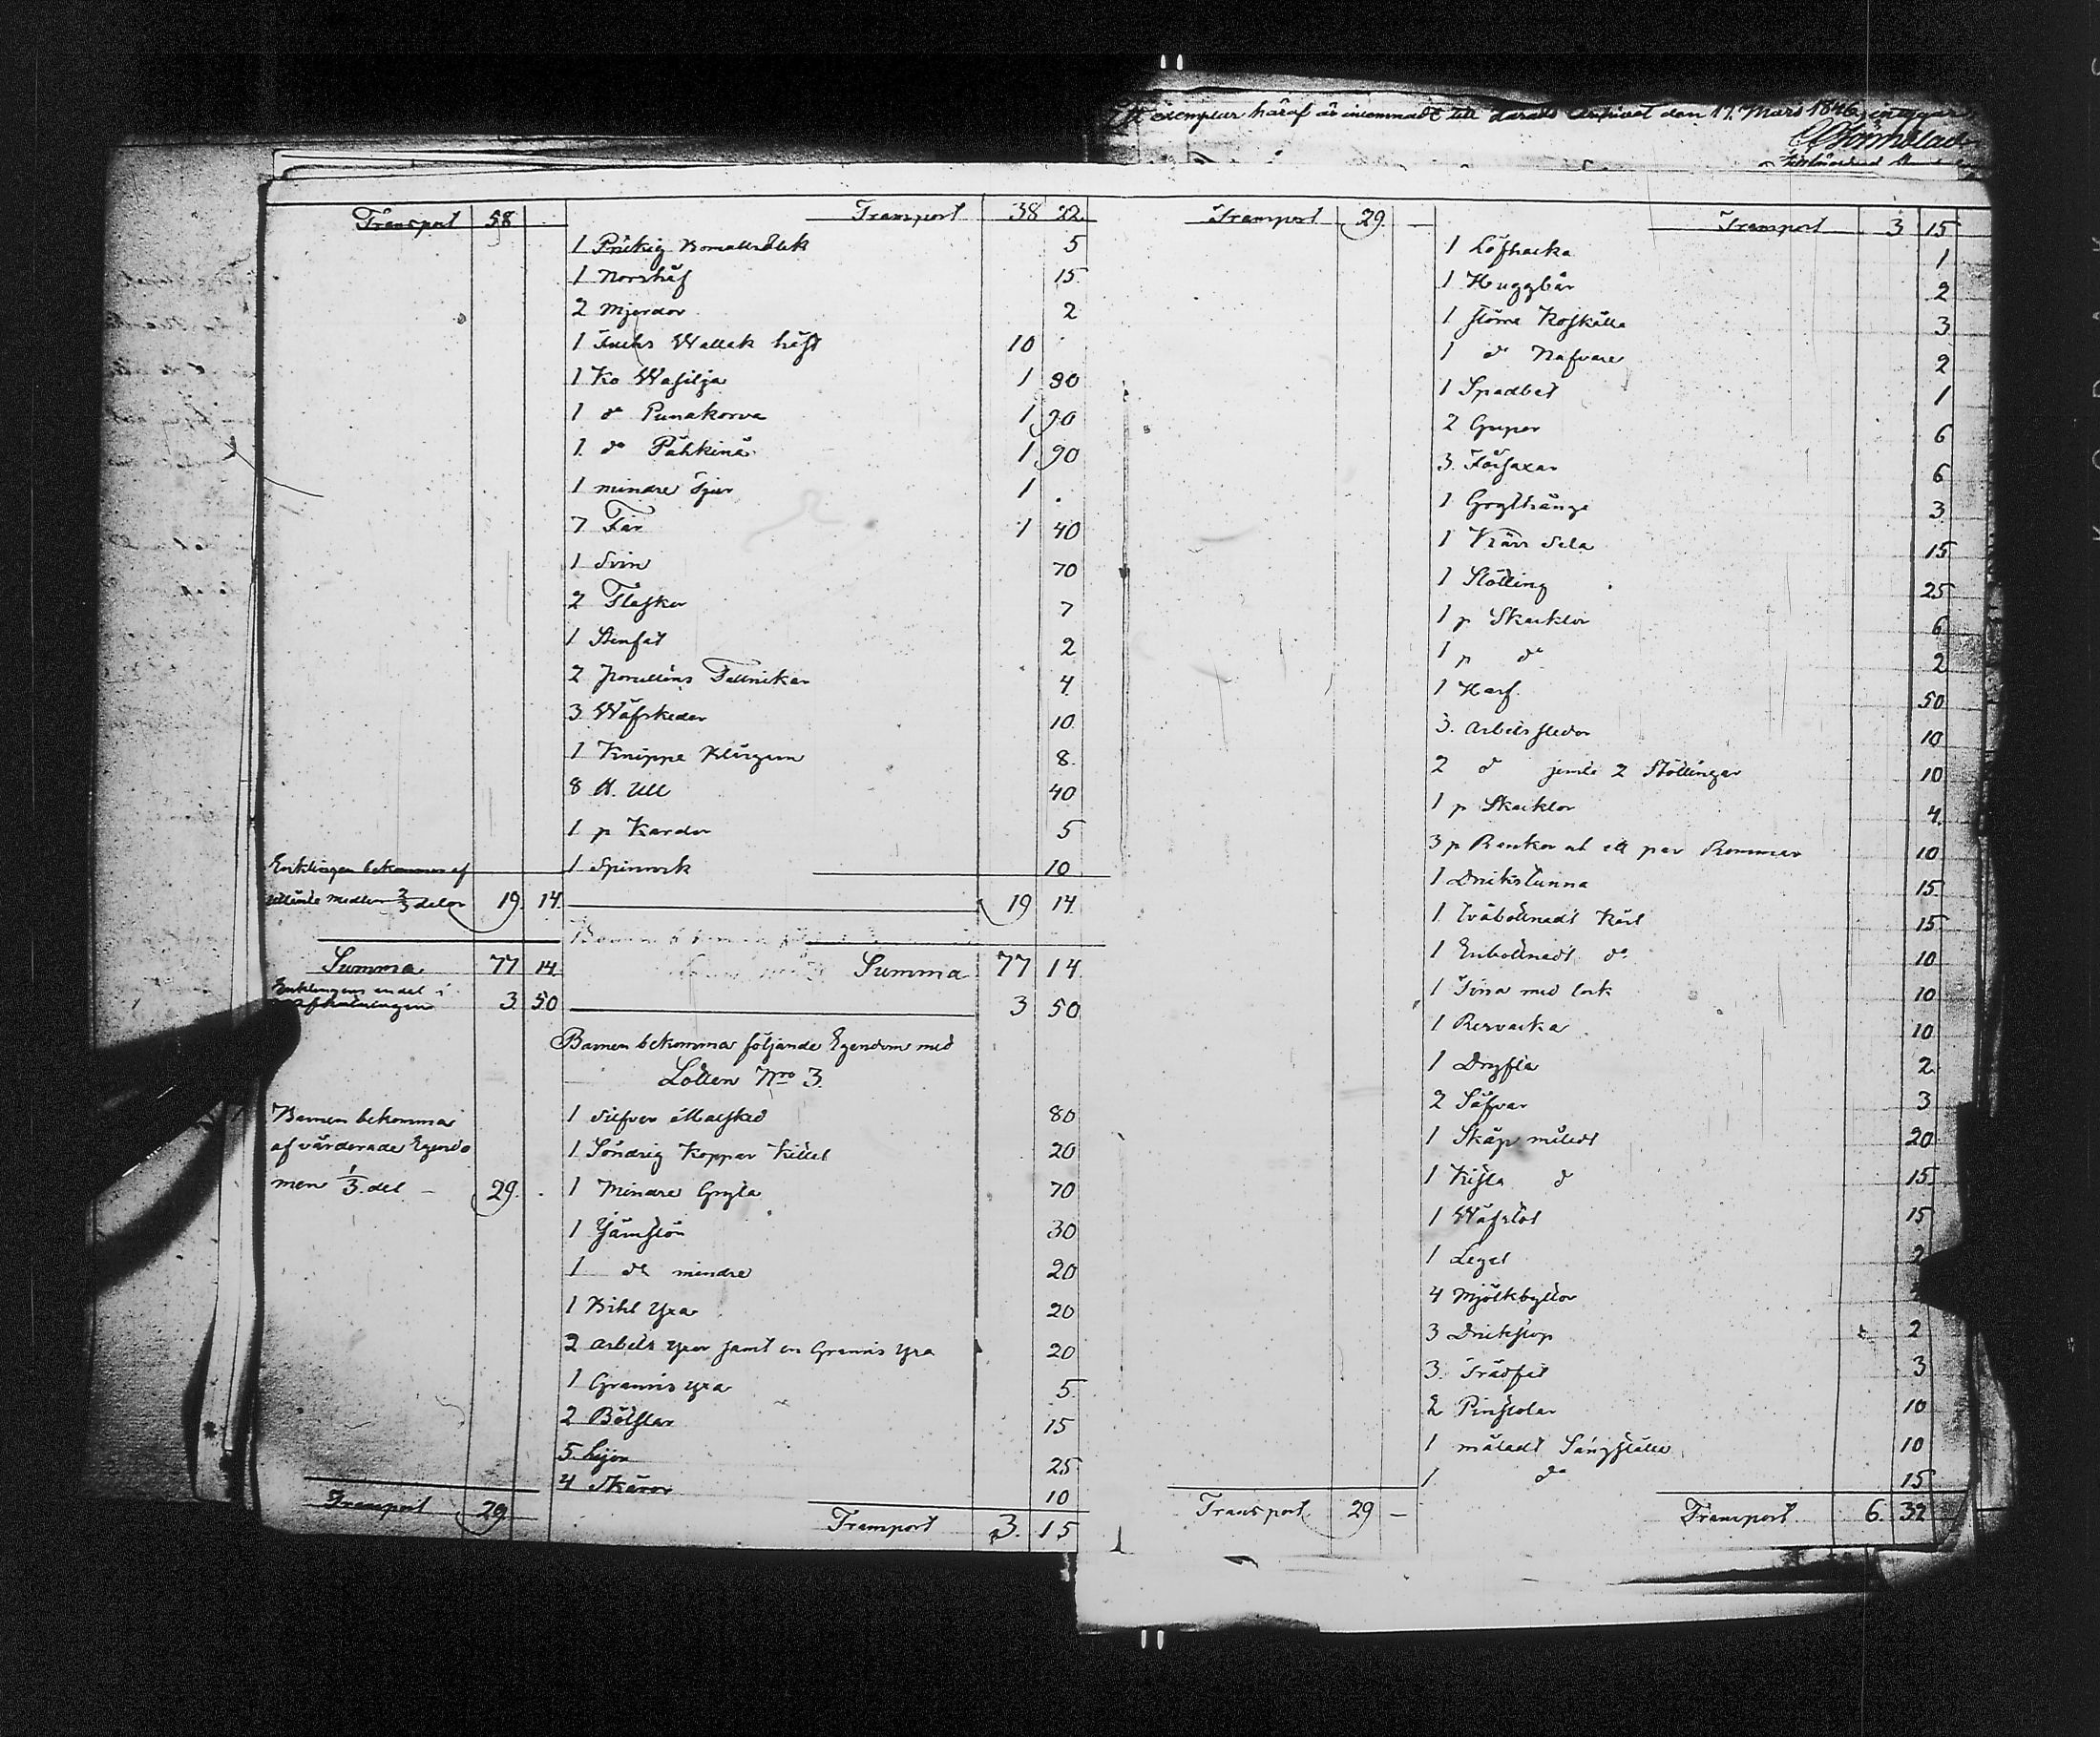 exemplar häraf är inlemnadt till Härads Archivet den 17. Mars 1846, intygar
Transport 58 Transport 38 22.
1 Prickig 5
1 Norshåf 15.
2 Mjerdor 2
1 Wallack häst 10
1 Ko Wasilja 1 90
1 do Punakorva 1 90
1. do Pähkinä 1 90
1 mindre Tjur 1 .
7 Får 1 40
1 Svin 70
2 Flaskor 7
1 Stenfat 2
2 Porcellins Tallrikar 4.
3 Wäfskedar 10
1 Knippe Blårgarn 8.
8 ℔. Ull 40
1 p Kardor 5
1 Spinrock 10
Enklingen bekommer af
medlen 2/3 delar 19. 14. 19 14.
Summa 77 14. Summa 77 14.
Enklingens andel i
3. 50 3 50
Barnen bekomma följande Egendom med
Lotten Nro 3.
Barnen bekomma
af värderade Egendo
men 1/3. del — 29. .
1 Silfver Matsked 80
1 Söndrig Koppar Kittel 20
1 Mindre Gryta 70
1 Jämstör 30
1 do mindre 20
1 Bihl Yxa 20
2 Arbets yxor samt en Grannis yxa 20
1 Grannis yxa 5
2 Bölstar 15
5 Lijor 25
4 Skäror 10
Transport 29. Transport 3. 15
Transport 29. — Transport 3 15
1 Löfhacka 1
1 Huggbår 2
1 större Koskälla 3
1 do Nafvare 2
1 Spadbet 1
2 Grepar 6
3. Fårsaxar 6
1 3
1 Kärr Sela 15
1 Stötting 25
1 p Skacklor 6
1 p do 2
1 Harf. 50
3. Arbets slädor 10
2 do jemte 2 Stöttingar 10
1 p Skacklor 4.
3 p Bankor at ett par Bommar 10
1 Drikstunna 15
1. tvåbottnadt Kärl 15
1 Enbottnadt do 10
1 Tina med lock 10
1 10
1 Dryfta 2
2 Såfvar 3
1 Skåp måladt 20
1 Kista do 15
1 Wäfstol 15
1 Legel 2
4 Mjölkbyttor
3 Drickstop 2
3. Trädfat 3
2 Pinstolar 10
1 måladt Sängställe 10
1 do 15
Transport. 29 — Transport. 6. 32